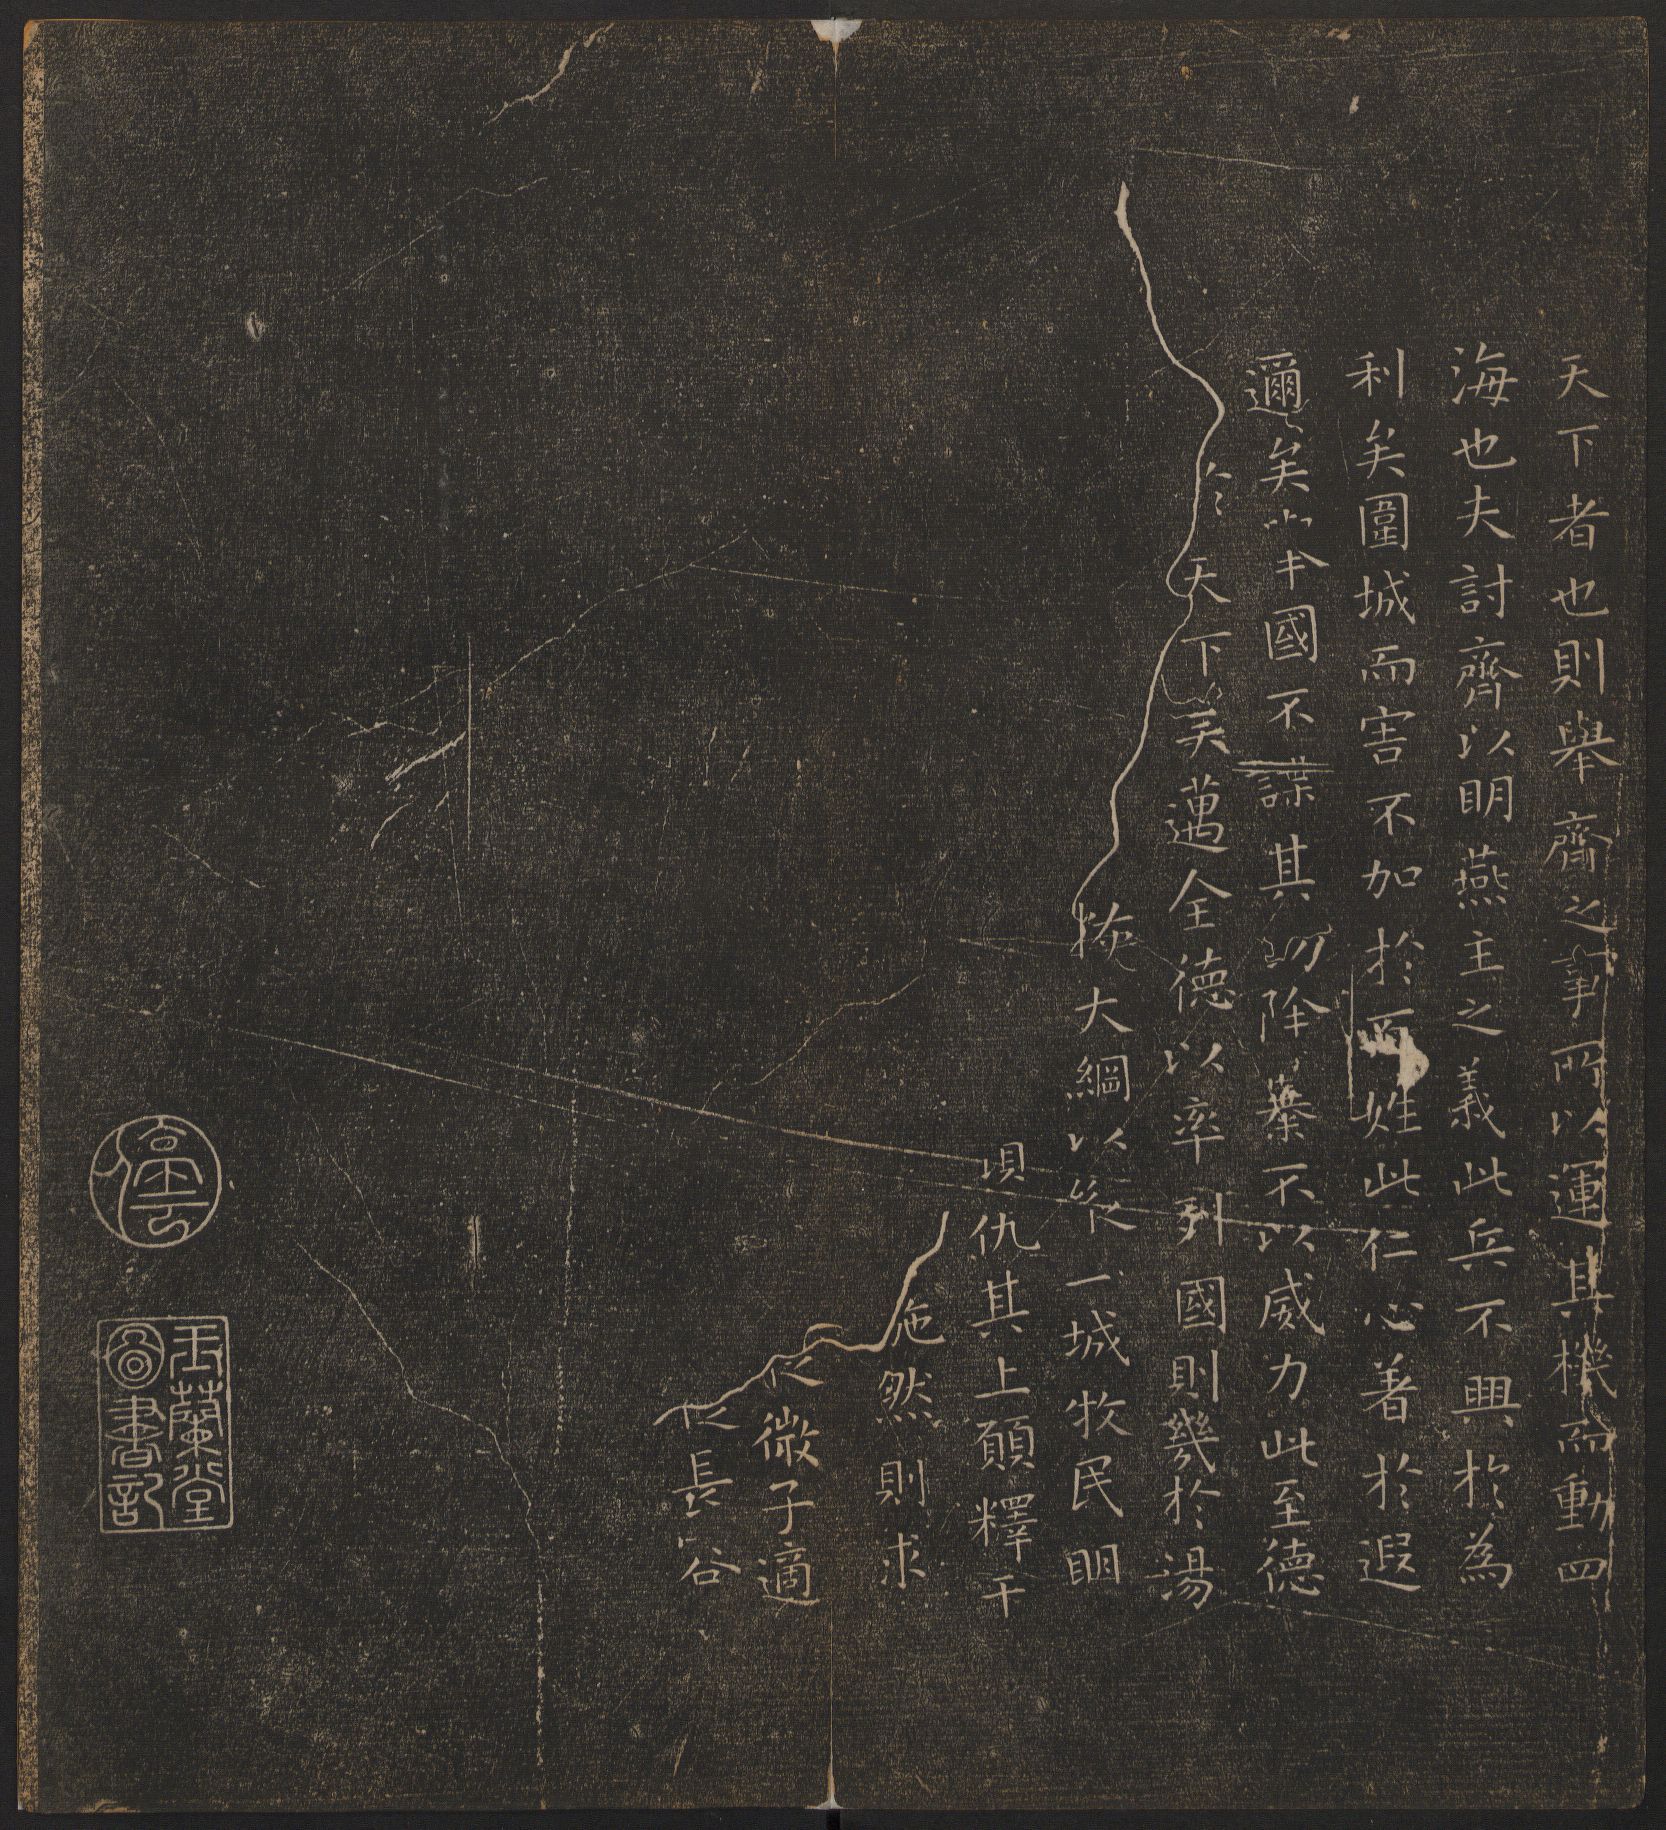 天下者也則舉齊之事所以運其機而動四
海也夫討齊以明燕主之義此兵不興於為
利矣圍城而害不加於百姓此仁心著於遐
邇矣舉國不謀其功除暴不以威力此至德
於天下矣邁全德以率列國則幾於湯
大綱以 一城牧民明
仇其上願釋干
施然則求
微子適
長容
停雲
玉蘭堂圖書記